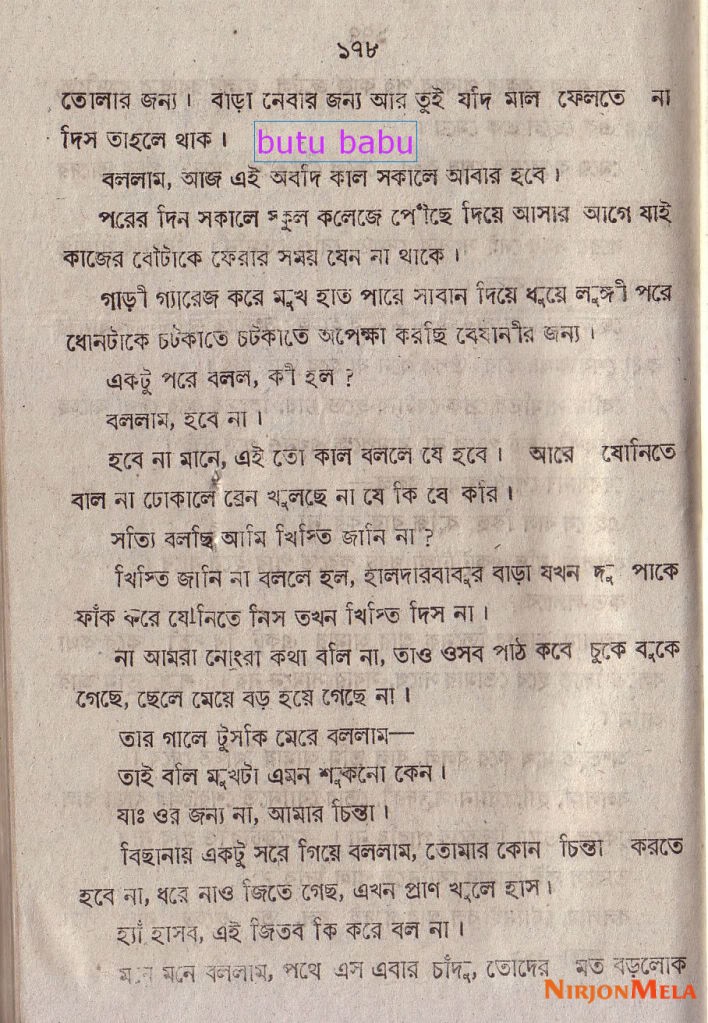 ১৭৮
তোলার জন্য। বাড়া নেবার জন্য আর তুই যদি মাল ফেলতে না
দিস তাহলে থাক।
butu babu
বললাম, আজ এই অবদি কাল সকালে আবার হবে।
পরের দিন সকালে স্কুল কলেজে পেঁৗছে দিয়ে আসার আগে যাই
কাজের বৌটাকে ফেরার সময় যেন না থাকে।
গাড়ী গ্যারেজ করে মুখ হাত পায়ে সাবান দিয়ে ধুয়ে লুঙ্গী পরে
ধোনটাকে চটকাতে চটকাতে অপেক্ষা করছি বেয়ানীর জন্য।
একটু পরে বলল, কী হল?
বললাম, হবে না।
হবে না মানে, এই তো কাল বললে যে হবে। আরে যোনিতে
বাল না ঢোকালে ব্রেন খুলছে না যে কি যে করি।
সত্যি বলছি আমি খিস্তি জানি না?
খিস্তি জানি না বললে হল, হালদারবাবুর বাড়া যখন দু পাকে
ফাঁক করে যোনিতে নিস তখন খিস্তি দিস না।
না আমরা নোংরা কথা বলি না, তাও ওসব পাঠ কবে চুকে বুকে
গেছে, ছেলে মেয়ে বড় হয়ে গেছে না।
তার গালে টুসকি মেরে বললাম—
তাই বলি মুখটা এমন শুকনো কেন।
যাঃ ওর জন্য না, আমার চিন্তা।
বিছানায় একটু সরে গিয়ে বললাম, তোমার কোন চিন্তা করতে
হবে না, ধরে নাও জিতে গেছ, এখন প্রাণ খুলে হাস।
হ্যাঁ হাসব, এই জিতব কি করে বল না।
মনে মনে বললাম, পথে এস এবার চাঁদু, তোদের মত বড়লোক
NIRJONMELA